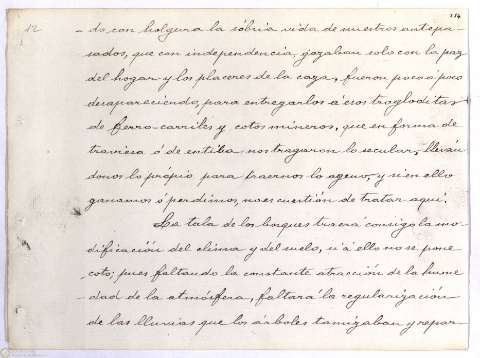 12
114
- do con holgura la sóbria vida de nuestros antepa-
sados, que con independencia, gozaban solo con la paz
del hogar y los placeres de la caza, fueron poco á poco
desapareciendo, para entregarlos á esos trogloditas
de ferro-carriles y cotos mineros, que en forma de
traviesa ó de entiba nos tragaron lo secular, llevan
donos lo própio para traernos lo ageno, y si en ello
ganamos ó perdimos, no es cuestión de tratar aquí.
La tala de los bosques traerá consigo la mo-
dificación del clima y del suelo, si á ello no se pone
coto; pues faltando la constante atracción de la hume
dad de la atmósfera, faltará la regularización
de las lluvias que los árboles tamizaban y repar-